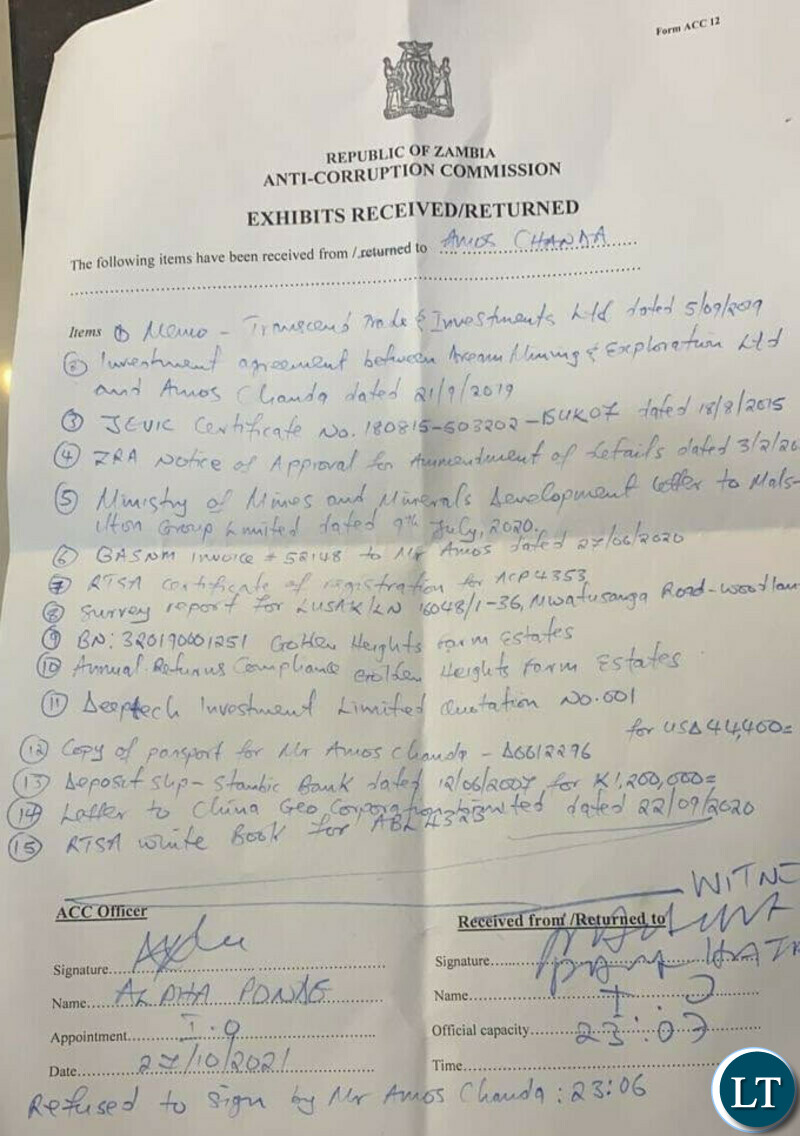 Form ACC 12
REPUBLIC OF ZAMBIA
ANTI-CORRUPTION COMMISSION
EXHIBITS RECEIVED/RETURNED
The following items have been received from /.returned to AMOS CHANDA
Items ① Memo - Transcend Trade & Investments Ltd dated 5/09/2019
② Investment agreement between Mining & Exploration Ltd
and Amos Chanda dated 21/9/2019
③ JEVIC Certificate No. 180815-503202-BUK07 dated 18/8/2015
④ ZRA Notice of Approval for Ammendment of details dated 3/2/20
⑤ Ministry of Mines and Minerals Development letter to Mals-
Group Limited dated 9th July, 2020.
⑥ Invoice # 52148 to Mr Amos dated 27/06/2020
⑦ RTSA certificate of registration for ACP 4353
⑧ Survey report for LUSAK/LN 16048/1-36, Mwatusanga Road-Woodlan
⑨ BN: 320190001251 Golden Heights Farm Estates
⑩ Annual Returns Compliance Golden Heights Farm Estates
⑪ Deeptech Investment Limited Quotation No. 001
for USD 44,400=
⑫ Copy of passport for Mr Amos Chanda -
⑬ Deposit slip - Stanbic Bank dated 12/06/2007 for K1,200,000=
⑭ Letter to China Geo Corporation Limited dated 22/09/2020
⑮ RTSA White Book for ABL 4323
WITNE
ACC Officer
Received from /Returned to
Signature
Signature
Name ALPHA
Name
Appointment I.O
Official capacity 23:03
Date 27/10/2021
Time
Refused to sign by Mr Amos Chanda : 23:06
LT